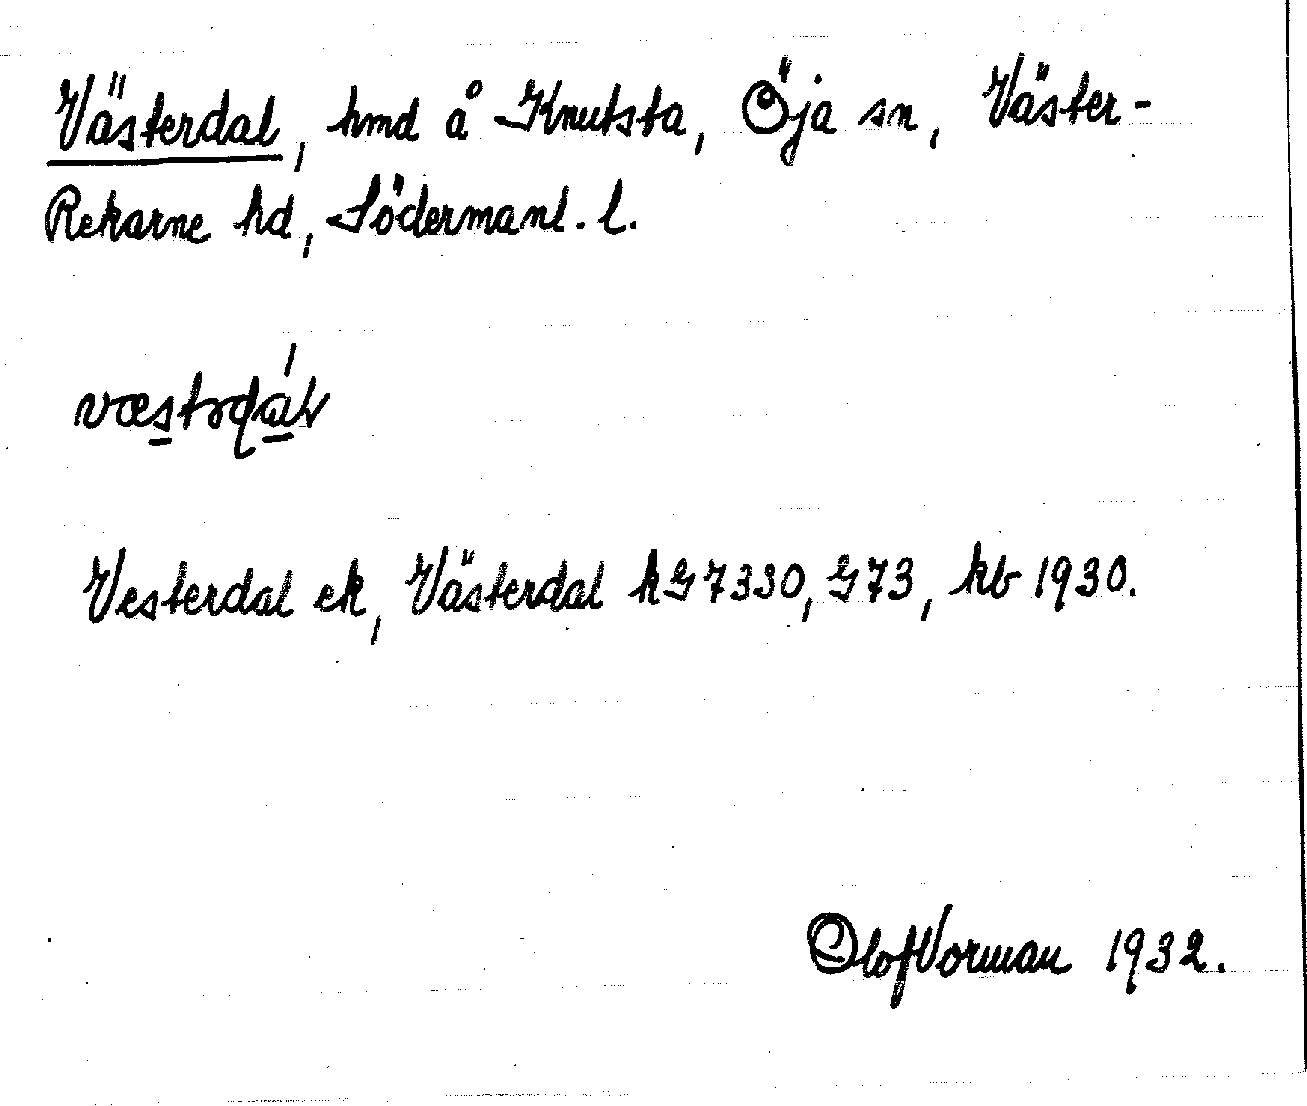 Västerdal, hmd å Knutsta, Öja sn, Väster-
Rekarne hd, Södermanl. l.
Vesterdal ek, Västerdal kG7330, G73, kb 1930.
Olof Vorman 1932.